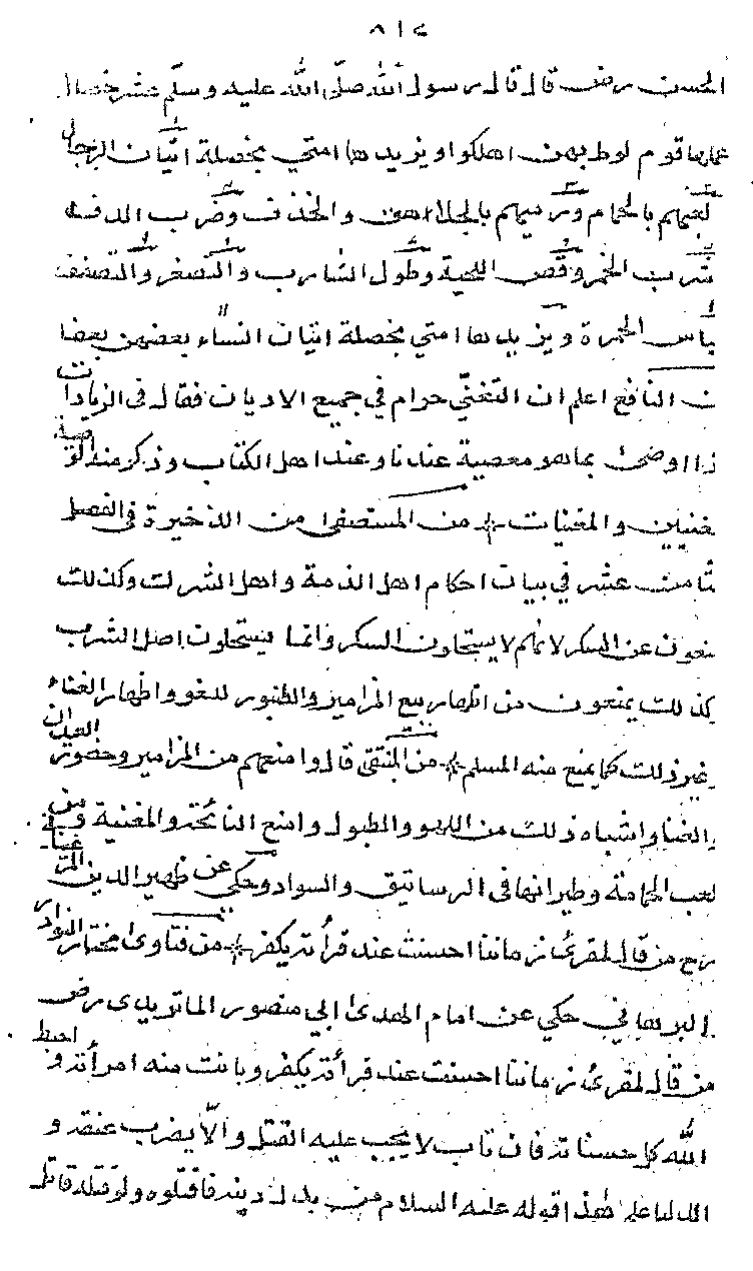 ٨١٤
الحسن رض قال قال رسول الله صلى الله عليه وسلم عشر خصال
عملها قوم لوط بهن اهلكوا ويزيدها امتي بخصلة اتيان الرجال
لعبهم بالحمام ورميهم بالجلاهق والخذف وضرب الدف
شرب الخمر وقص اللحية وطول الشارب والصفير والتصفيق
باس الحرة ويزيدها امتي بخصلة اتيان النساء بعضهن بعضا
ن النافع اعلم ان التغني حرام في جميع الاديان فقال في الزيادات
ذا اوصى بما هو معصية عندنا وعند اهل الكتاب وذكر منه الوصية
غنيين والمغنيات من المستصفى من الذخيرة في الفصل
ثامن عشر في بيان احكام اهل الذمة واهل الشرك وكذلك
نعون عن السكر لانهم لا يستحلون السكر وانما يستحلون اصل الشرب
كذلك يمنعون من اظهار بيع المزامير والطنبور للغو واظهار الغناء
غير ذلك كما يمنع منه المسلم من المنتقى قالوا امنعهم من المزامير وحضور العيدان
والغنا واشباه ذلك من اللهو والطبول وامنع النائحة والمغنية ومن
لعب الحمامة وطيرانها في الرساتيق والسواد وحكي عن ظهير الدين المرغيناني
رح من قال لمقرئ زماننا احسنت عند قرأته يكفر من فتاوى مختار النوادر
البرهاني حكي عن امام الهدى ابي منصور الماتريدى رض
من قال لمقرئ زماننا احسنت عند قرأته يكفر وبانت منه امرأته و احبط
الله كل حسناته فان تاب لا يجب عليه القتل والا يضرب عنقه و
عليه السلام من بدل دينه فاقتلوه ولو قتله قاتل